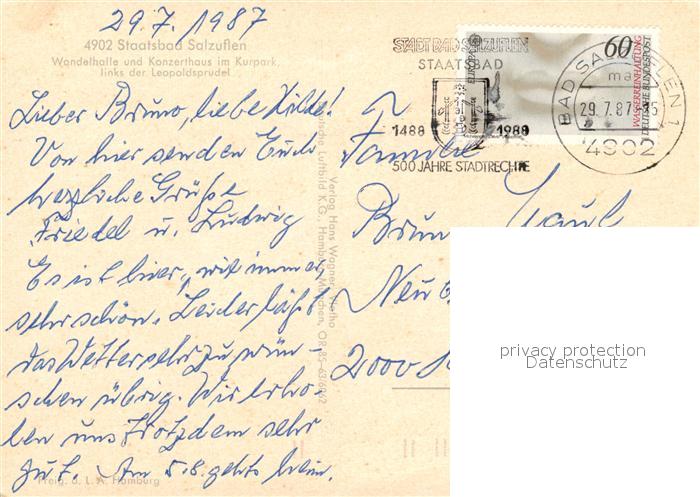 29.7.1987
4902 Staatsbad Salzuflen
Wandelhalle und Konzerthaus im Kurpark,
links der Leopoldsprudel
Lieber Bruno, liebe Hilde!
Von hier senden Euch
herzliche Grüße
Friedel u. Ludwig
Es ist hier, wie immer,
sehr schön. Leider läßt
das Wetter sehr zu wün-
schen übrig. Wir erho-
len uns trotzdem sehr
gut. Am 5.8. gehts heim.
Freig. d. L. A. Hamburg
Verlag Hans Wagner, Vlotho
Luftbild K.G., Hamburg-München,
STADT BAD SALZUFLEN
STAATSBAD
1488 1988
500 JAHRE STADTRECHTE
EUROPA
60
WASSERREINHALTUNG
DEUTSCHE BUNDESPOST
BAD SALZUFLEN 1
ma
29.7.87-15
4902
Familie
Brun
Neu
2000
privacy protection
Datenschutz